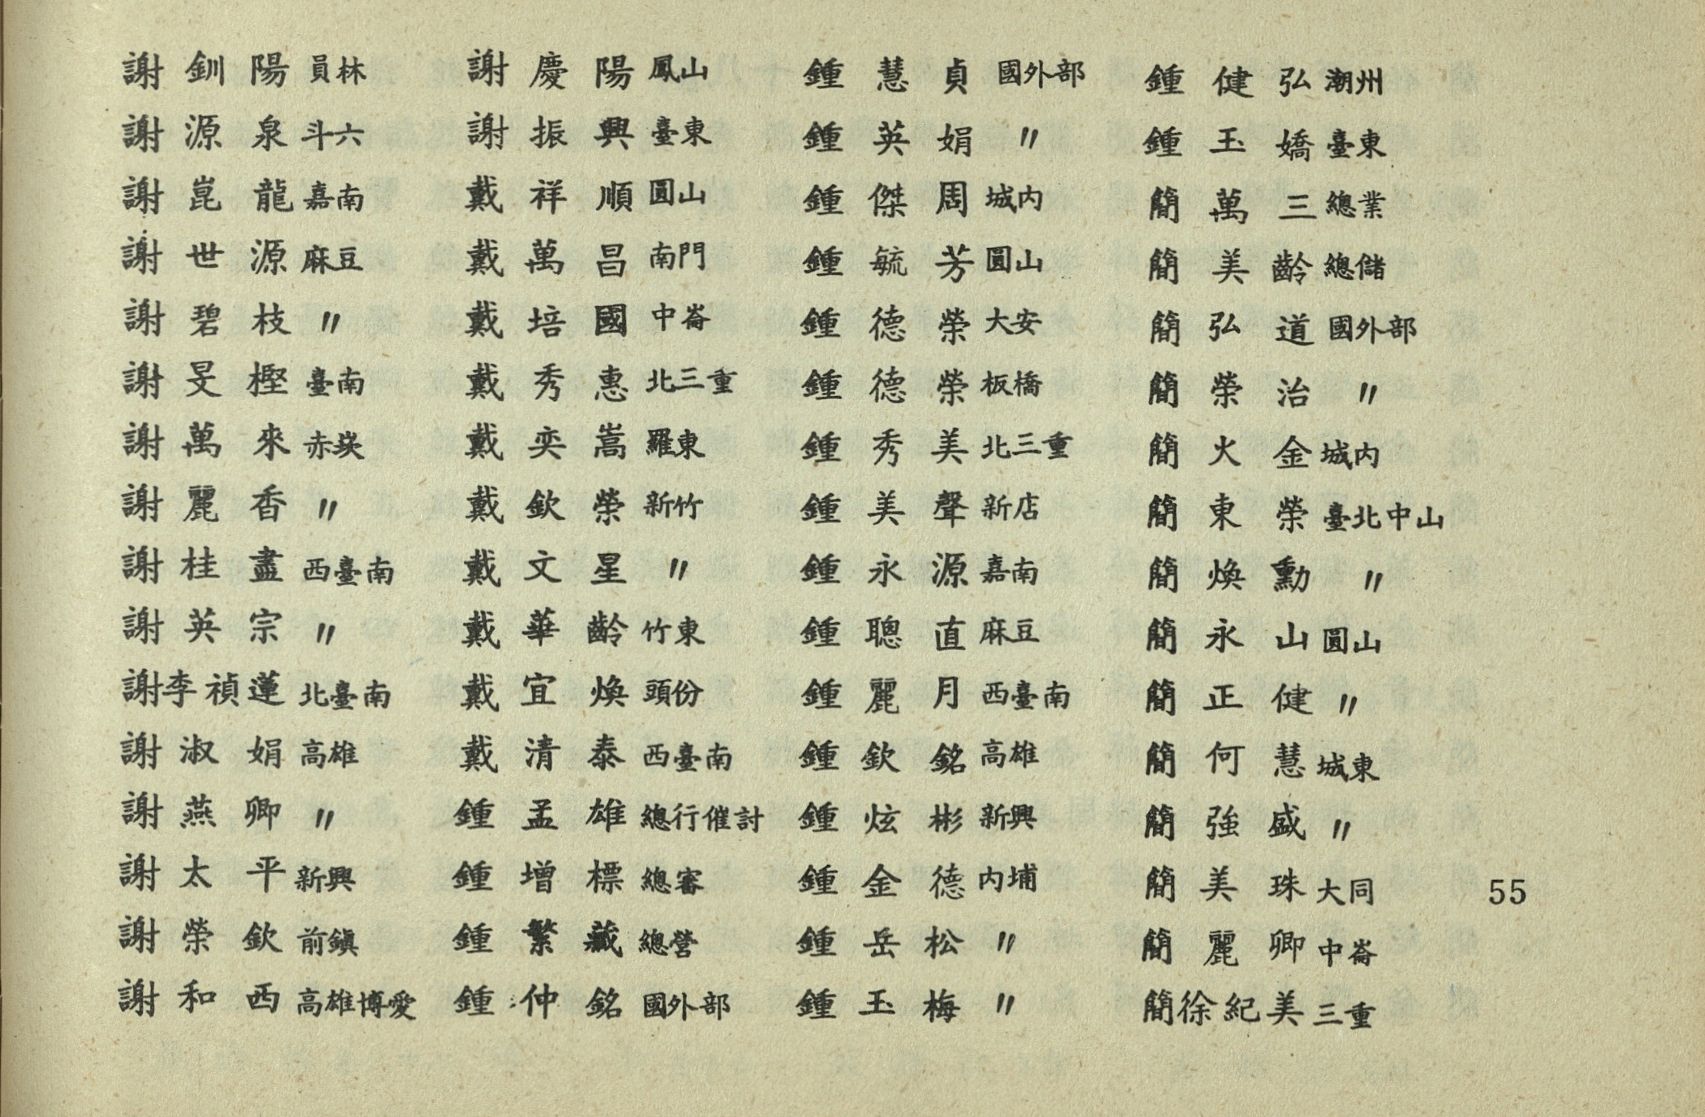 謝釧陽 員林
謝源泉 斗六
謝崑龍 嘉南
謝世源 麻豆
謝碧枝 〃
謝旻樫 臺南
謝萬來 赤崁
謝麗香 〃
謝桂盡 西臺南
謝英宗 〃
謝李禎蓮 北臺南
謝淑娟 高雄
謝燕卿 〃
謝太平 新興
謝榮欽 前鎮
謝和西 高雄博愛
謝慶陽 鳳山
謝振興 臺東
戴祥順 圓山
戴萬昌 南門
戴培國 中崙
戴秀惠 北三重
戴奕嵩 羅東
戴欽榮 新竹
戴文星 〃
戴華齡 竹東
戴宜煥 頭份
戴清泰 西臺南
鍾孟雄 總行催討
鍾增標 總審
鍾繁藏 總營
鍾仲銘 國外部
鍾慧貞 國外部
鍾英娟 〃
鍾傑周 城内
鍾毓芳 圓山
鍾德榮 大安
鍾德榮 板橋
鍾秀美 北三重
鍾美聲 新店
鍾永源 嘉南
鍾聰直 麻豆
鍾麗月 西臺南
鍾欽銘 高雄
鍾炫彬 新興
鍾金德 内埔
鍾岳松 〃
鍾玉梅 〃
鍾健弘 潮州
鍾玉嬌 臺東
簡萬三 總業
簡美齡 總儲
簡弘道 國外部
簡榮治 〃
簡火金 城内
簡東榮 臺北中山
簡煥勳 〃
簡永山 圓山
簡正健 〃
簡何慧 城東
簡強盛 〃
簡美珠 大同
簡麗卿 中崙
簡徐紀美 三重
55